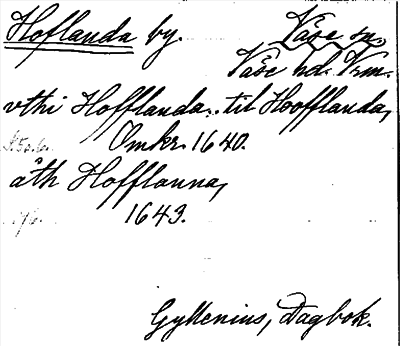 Hoflanda by. Väse sn.
Väse hd. Vrm.
vthi Hofflanda, . til Hoofflanda,
Omkr. 1640.
åth Hofflanna,
1643.
Gyllenius, Dagbok.